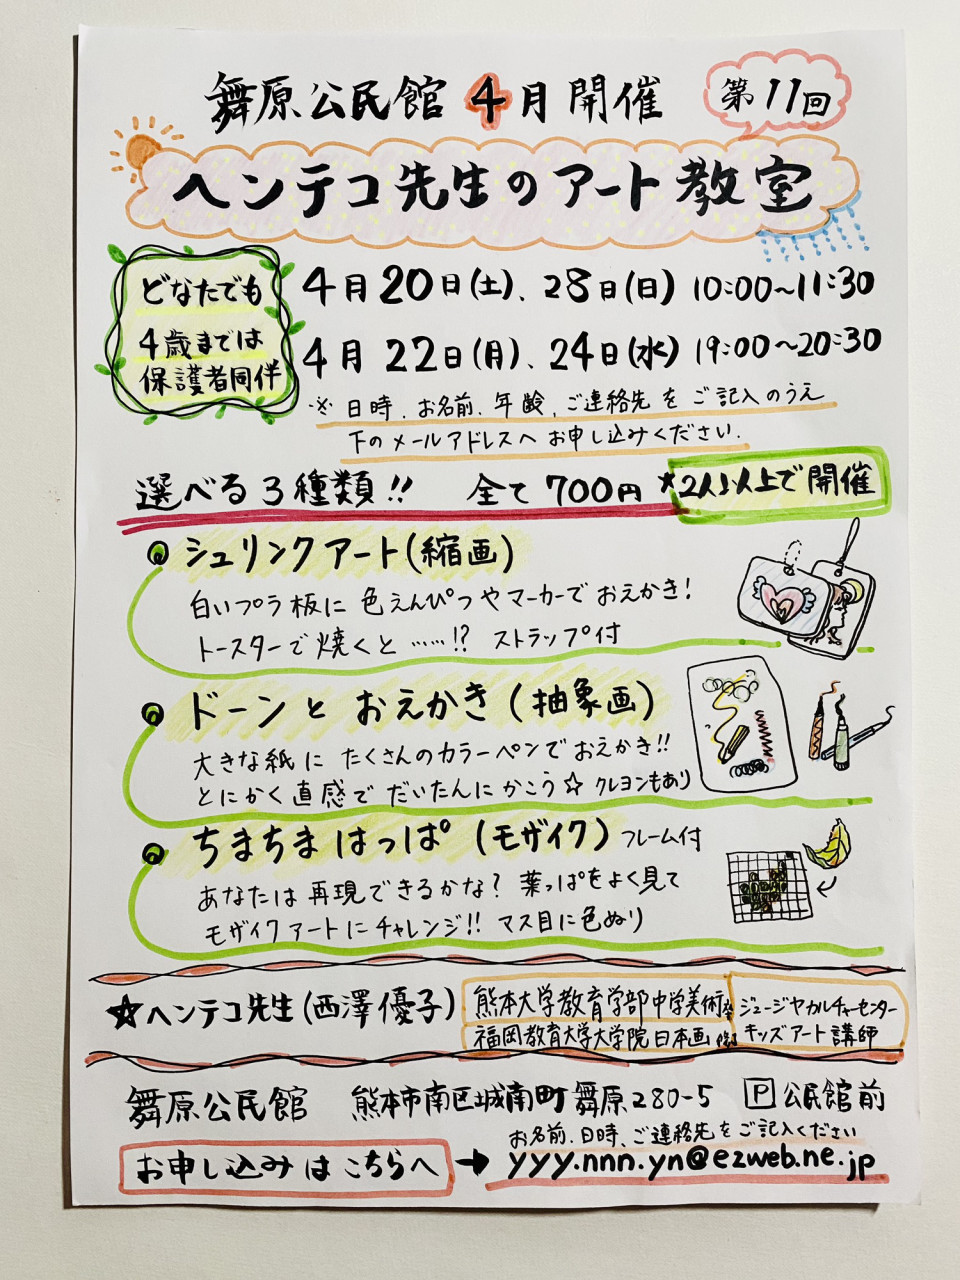 舞原公民館 4月開催
第11回
ヘンテコ先生のアート教室
どなたでも
4歳までは
保護者同伴
4月20日(土)、28日(日) 10:00~11:30
4月 22日(月)、24日(水) 19:00~20:30
※ 日時、お名前、年齢、ご連絡先を ご記入のうえ
下のメールアドレスへ お申し込みください.
選べる3種類!! 全て700円 ★2人以上で開催
シュリンクアート(縮画)
白いプラ板に 色えんぴつやマーカーで おえかき!
トースターで焼くと ……!? ストラップ付
ドーンと おえかき(抽象画)
大きな紙に たくさんのカラーペンでおえかき!!
とにかく直感で だいたんに かこう☆ クレヨンもあり
ちまちま はっぱ (モザイク) フレーム付
あなたは 再現できるかな? 葉っぱをよく見て
モザイクアートにチャレンジ!! マス目に色ぬり
★ヘンテコ先生(西澤優子)
熊本大学教育学部中学美術卒
福岡教育大学大学院日本画修了
ジュージヤカルチャーセンター
キッズアート講師
舞原公民館 熊本市南区城南町舞原280-5 P 公民館前
お名前、日時、ご連絡先をご記入ください
お申し込みはこちらへ → yyy.nnn.yn@ezweb.ne.jp